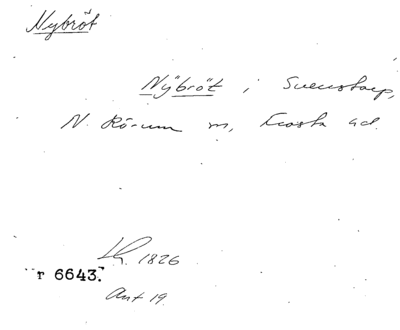 Nybröt
Nybröt i Svenstorp,
N. Rörum m, Frosta hd.
Lh. 1826
r 6643.
Ant 19.